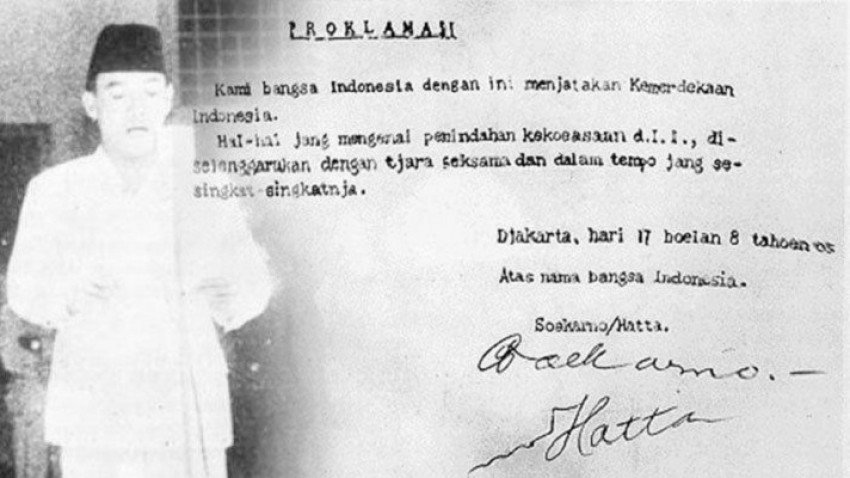 PROKLAMASI
Kami bangsa Indonesia dengan ini menjatakan Kemerdekaan
Indonesia.
Hal-hal jang mengenai pemindahan kekoeasaan d.l.l., di-
selenggarakan dengan tjara seksama dan dalam tempo jang se-
singkat-singkatnja.
Djakarta, hari 17 boelan 8 tahoen 05
Atas nama bangsa Indonesia.
Soekarno/Hatta.
Soekarno.–
Hatta